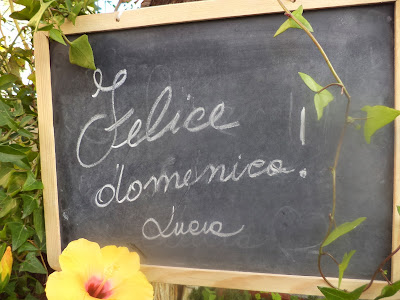 Felice
domenica.
Lucia